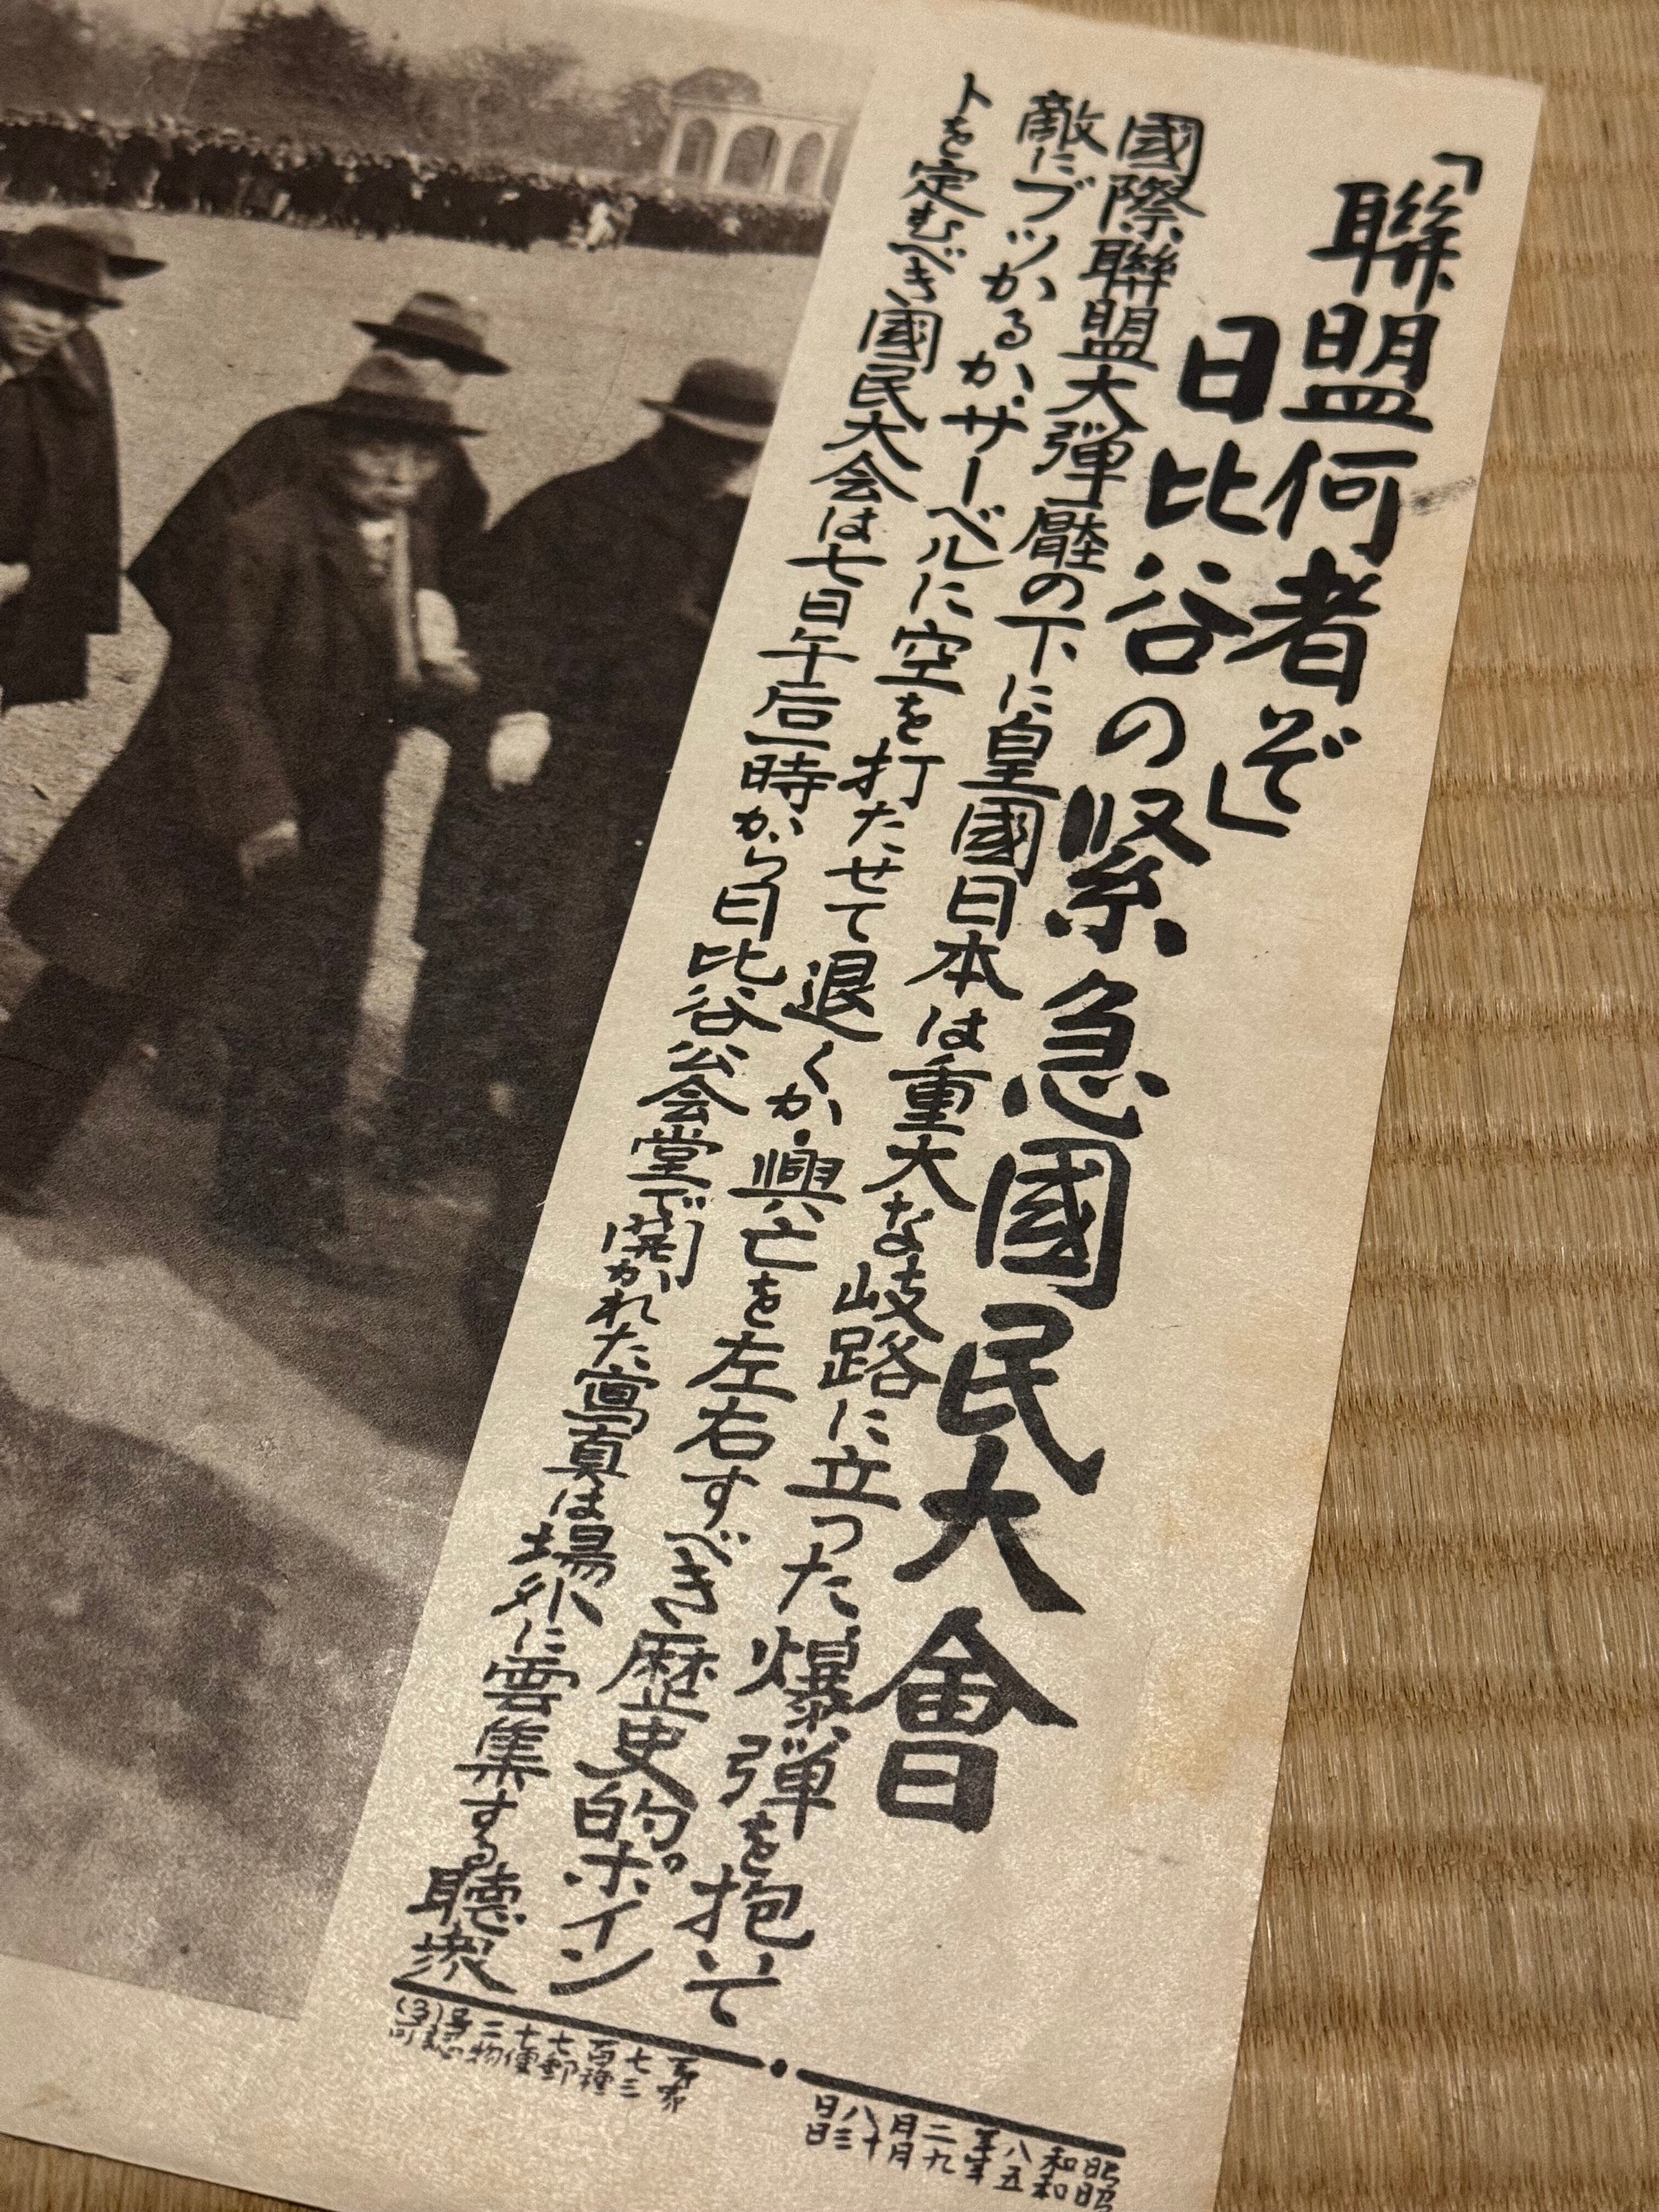 「聯盟何者ぞ」
日比谷の緊急國民大會
國際聯盟大弾壓の下に皇國日本は重大な岐路に立った爆弾を抱いて
敵にブツかるか、サーベルに空を打たせて退くか、興亡を左右すべき歴史的ポイン
トを定むべき國民大会は七日午后一時から日比谷公会堂で開かれた寫真は場外に雲集する聴衆
昭和八年二月八日
昭和五年九月十三日
第七百七十二号
第三種郵便物認可
(3)